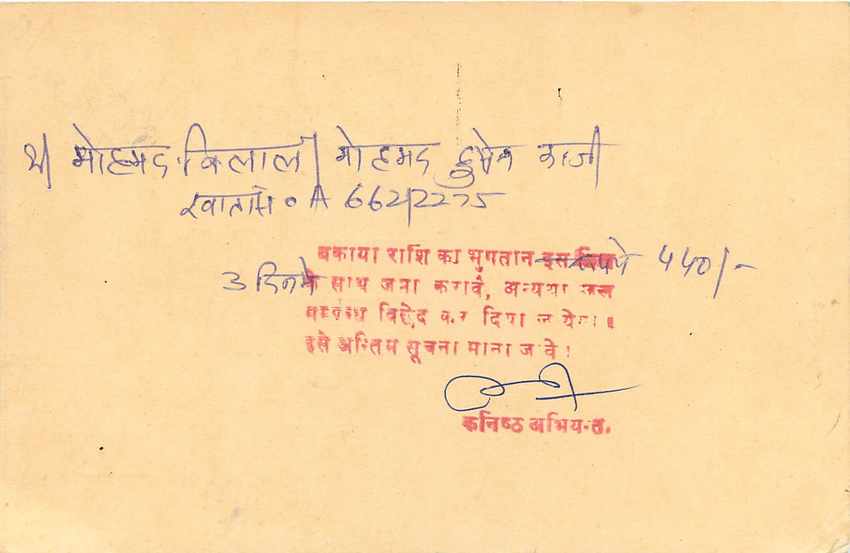 श्री मोहमद बिलाल / मोहमद हुसेन काजी
खाता सं० A 662/2275
बकाया राशि का भुगतान इस बिल रूपये 440/-
3 दिनमे के साथ जमा करावें, अन्यथा जल
सम्बंध विछेद कर दिया जायेगा ।
इसे अन्तिम सूचना माना जावे ।
कनिष्ठ अभियन्ता.